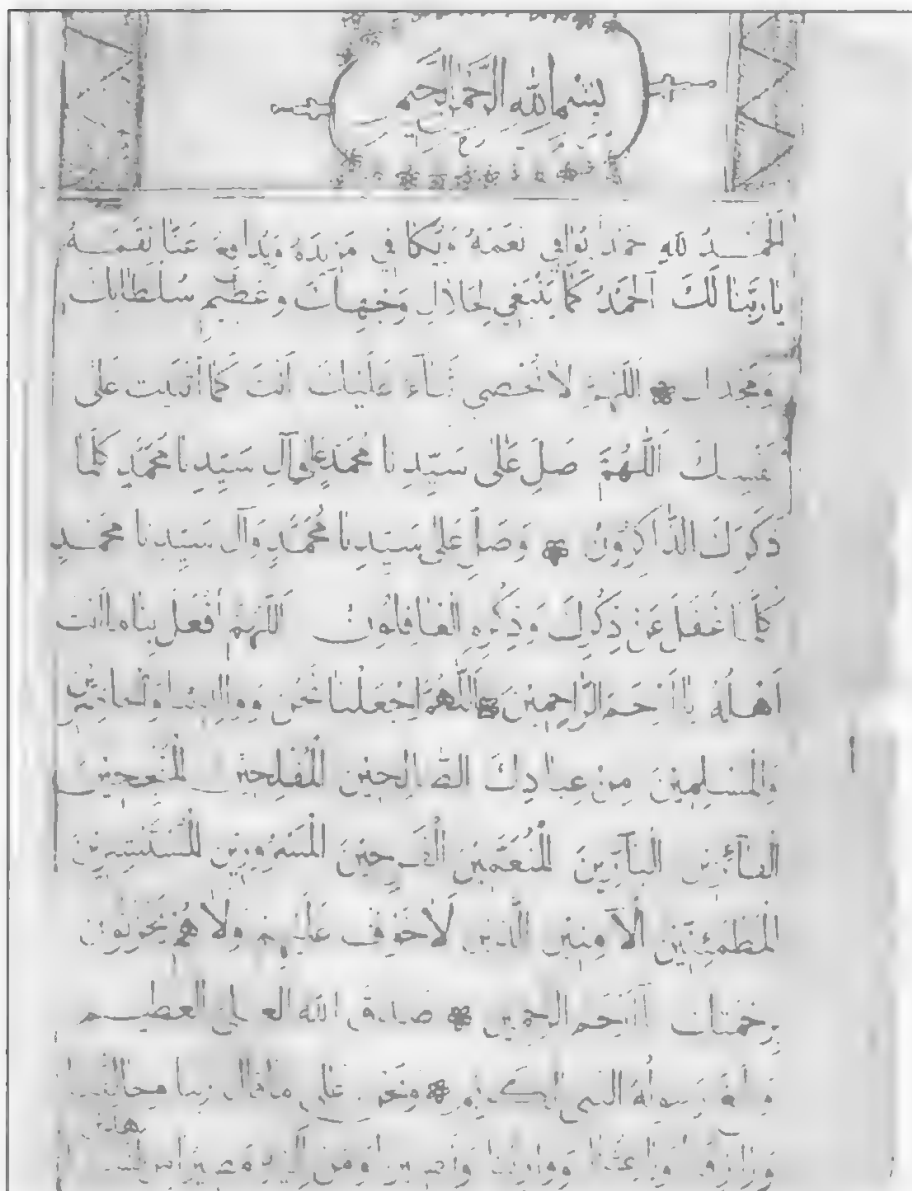 بسم الله الرحمن الرحيم
الحمد لله حمدا يوافي نعمه ويكافي مزيده ويدافع عنا نقمه
يا ربنا لك الحمد كما ينبغي لجلال وجهك وعظيم سلطانك
ومجدك اللهم لا نحصي ثناء عليك انت كما اثنيت على
نفسك اللهم صل على سيدنا محمد وعلى آل سيدنا محمد كلما
ذكرك الذاكرون وصل على سيدنا محمد وآل سيدنا محمد
كلما غفل عن ذكرك وذكره الغافلون اللهم افعل بنا ما انت
اهله يا ارحم الراحمين اللهم اجعلنا نحن ووالدينا والحاضرين
والمسلمين من عبادك الصالحين المفلحين المنجحين
الفائزين البارين المنعمين الفرحين المسرورين المستبشرين
المطمئنين الآمنين الذين لا خوف عليهم ولا هم يحزنون
برحمتك يا ارحم الراحمين صدق الله العلي العظيم
وبلغ رسوله النبي الكريم ونحن على ما قال ربنا